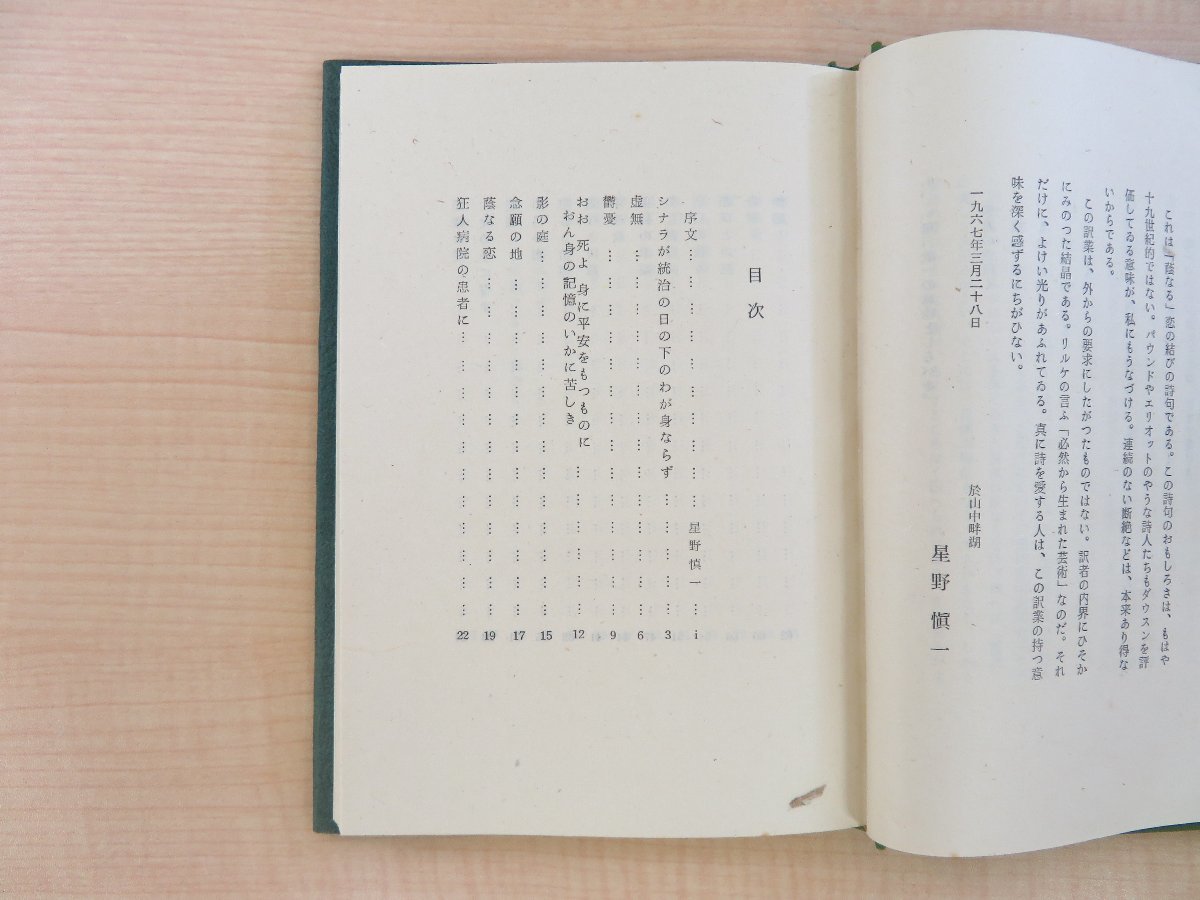 これは「蔭なる」恋の結びの詩句である。この詩句のおもしろさは、もはや
十九世紀的ではない。パウンドやエリオットのやうな詩人たちもダウスンを評
価してゐる意味が、私にもうなづける。連続のない断絶などは、本来あり得な
いからである。
この訳業は、外からの要求にしたがつたものではない。訳者の内界にひそか
にみのつた結晶である。リルケの言ふ「必然から生まれた芸術」なのだ。それ
だけに、よけい光りがあふれてゐる。真に詩を愛する人は、この訳業の持つ意
味を深く感ずるにちがひない。
一九六七年三月二十八日
於山中畔湖
星野愼一
目次
序文………………………………星野慎一…i
シナラが統治の日の下のわが身ならず…………3
虚無………………………………………6
鬱憂………………………………………9
おお 死よ 身に平安をもつものに
おん身の記憶のいかに苦しき………………12
影の庭……………………………………15
念願の地…………………………………17
蔭なる恋…………………………………19
狂人病院の患者に…………………………22